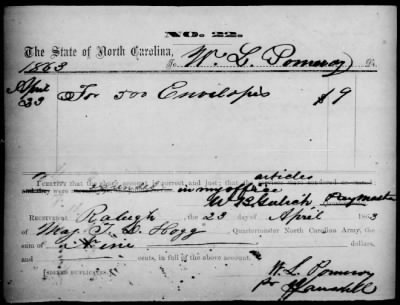 NO. 22.
The State of North Carolina,
To W. L. Pomeroy Dr.
1863
April
23 For 500 Envilopes $9
articles
I CERTIFY that the above account is correct and just; that the
and they were in my office
Paymaster
RECEIVED at Raleigh the 23 day of April 1863
of Maj. T. D. Hogg Quartermaster North Carolina Army, the
sum of Nine dollars,
and cents, in full of the above account.
[SIGNED DUPLICATES.]
W. L. Pomeroy
pr